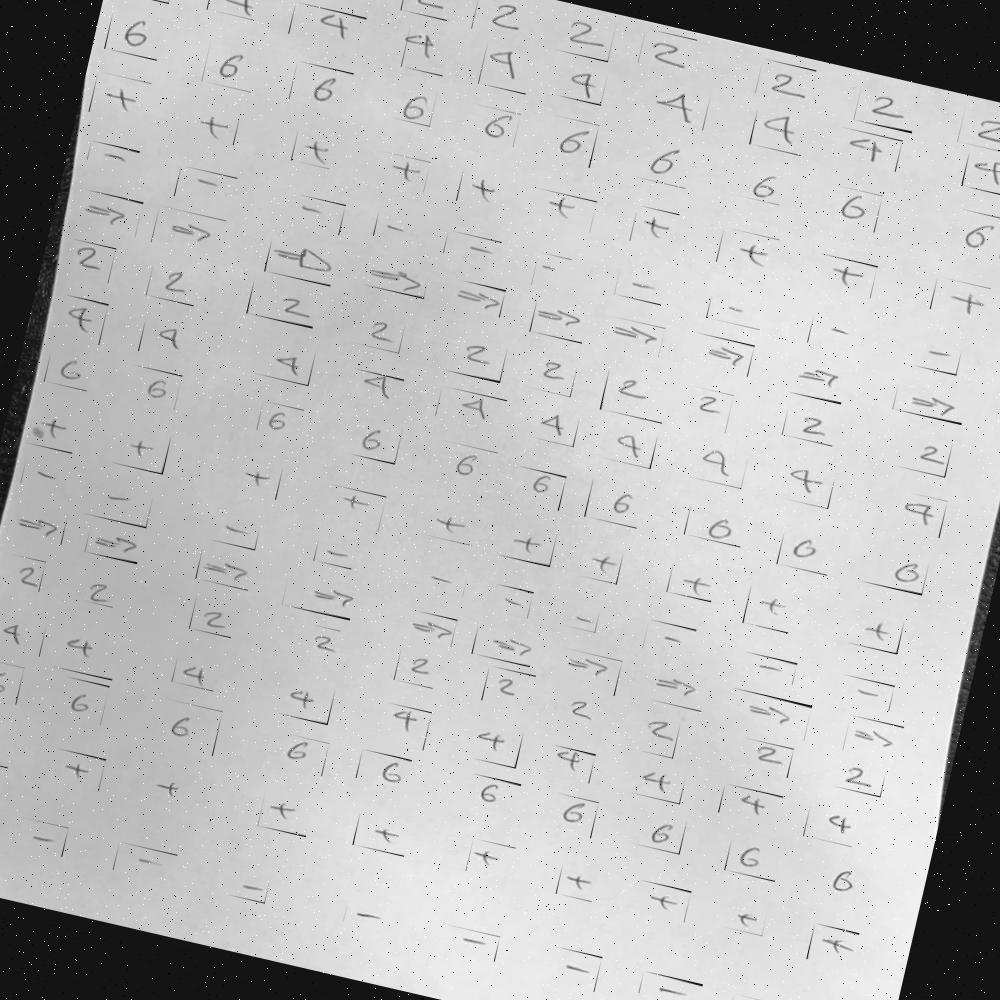 2 2 2 2 2 2
4 4 4 4 4 4 4 4 4
6 6 6 6 6 6 6 6 6 6
+ + + + + + + + + +
- - - - - - - - - -
⇒ ⇒ ⇒ ⇒ ⇒ ⇒ ⇒ ⇒ ⇒ ⇒
2 2 2 2 2 2 2 2 2 2
4 4 4 4 4 4 4 4 4 4
6 6 6 6 6 6 6 6 6 6
+ + + + + + + + + +
- - - - - - - - - -
⇒ ⇒ ⇒ ⇒ ⇒ ⇒ ⇒ ⇒ ⇒ ⇒
2 2 2 2 2 2 2 2 2 2
4 4 4 4 4 4 4 4 4 4
6 6 6 6 6 6 6 6 6
+ + + + + + + + +
- - - - - - -